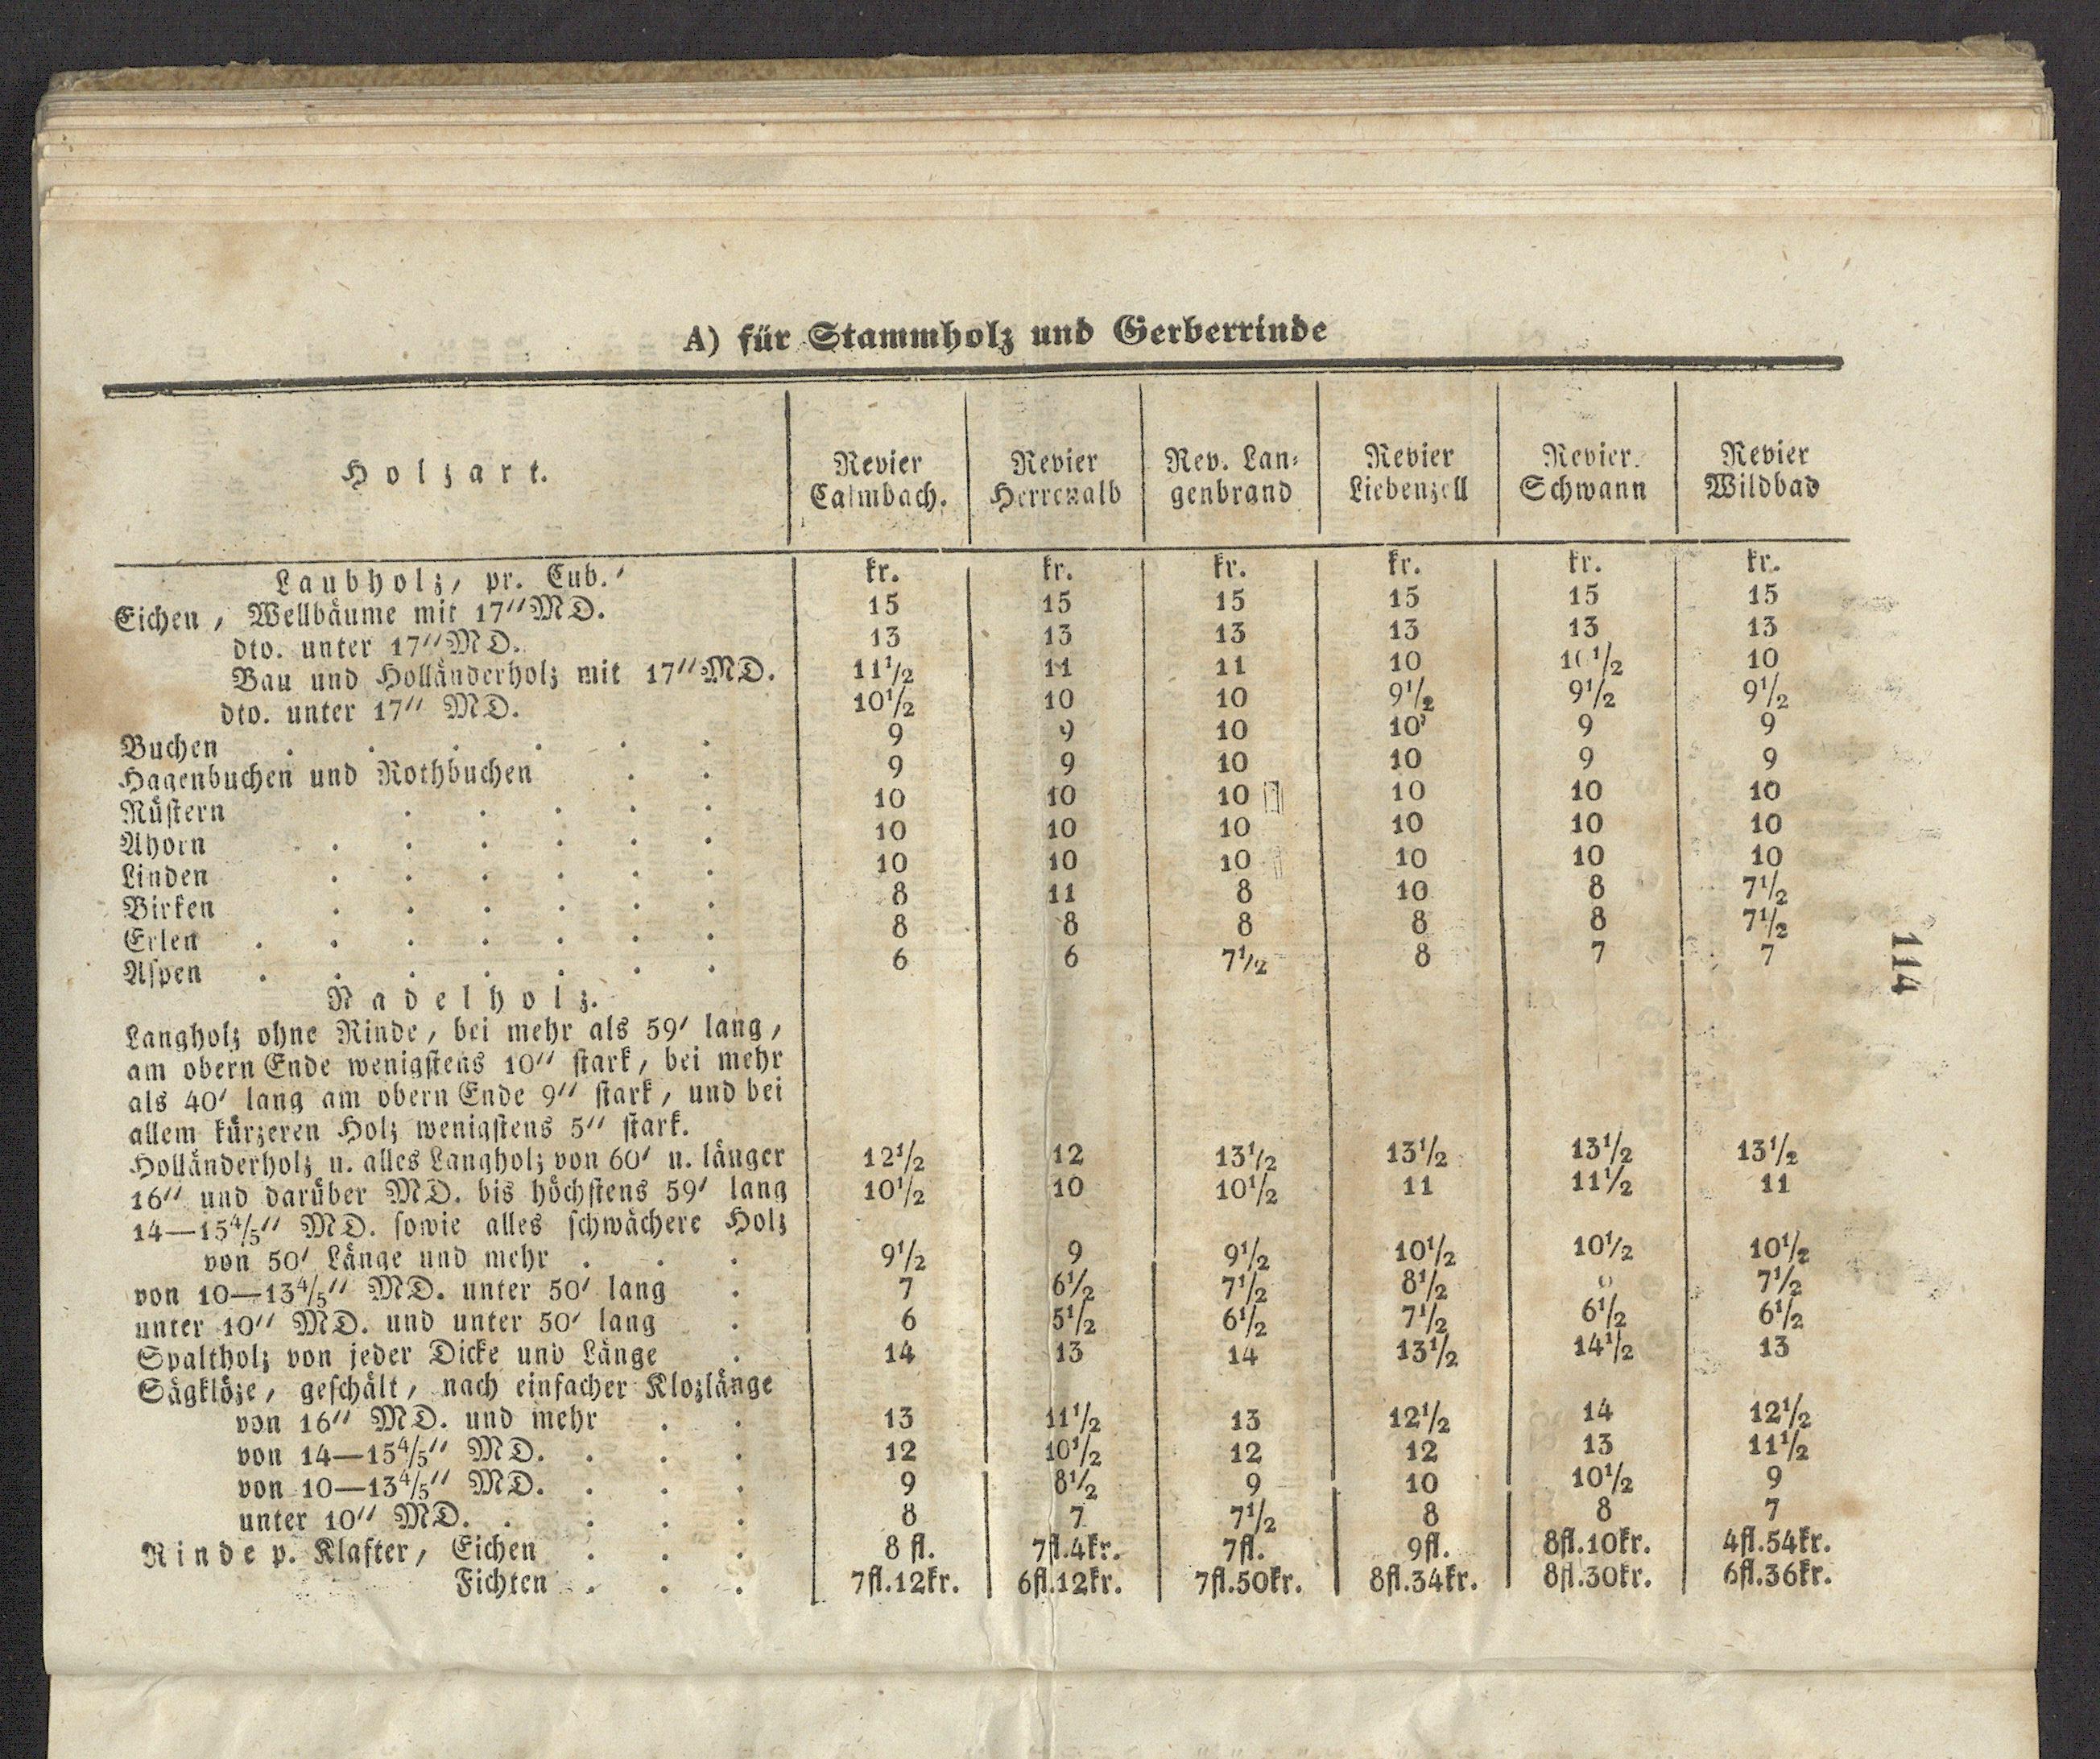 A) für Stammholz und Gerberrinde
Holzart. Revier Calmbach. Revier Herrenalb Rev. Lan-genbrand Revier Liebenzell Revier Schwann Revier Wildbad
Laubholz, pr. Cub.' kr. kr. kr. kr. kr. kr.
Eichen, Wellbäume mit 17" MD. 15 15 15 15 15 15
dto. unter 17" MD. 13 13 13 13 13 13
Bau und Holländerholz mit 17" MD. 11½ 11 11 10 10½ 10
dto. unter 17" MD. 10½ 10 10 9½ 9½ 9½
Buchen . . . . . . 9 9 10 10 9 9
Hagenbuchen und Rothbuchen . . 9 9 10 10 9 9
Rüstern . . . . . 10 10 10 10 10 10
Ahorn . . . . . . 10 10 10 10 10 10
Linden . . . . . . 10 10 10 10 10 10
Birken . . . . . . 8 11 8 10 8 7½
Erlen . . . . . . . 8 8 8 8 8 7½
Aspen . . . . . . . 6 6 7½ 8 7 7
Nadelholz.
Langholz ohne Rinde, bei mehr als 59' lang,
am obern Ende wenigstens 10" stark, bei mehr
als 40' lang am obern Ende 9" stark, und bei
allem kürzeren Holz wenigstens 5" stark.
Holländerholz u. alles Langholz von 60' u. länger 12½ 12 13½ 13½ 13½ 13½
16" und darüber MD. bis höchstens 59' lang 10½ 10 10½ 11 11½ 11
14—15⅘" MD. sowie alles schwächere Holz
von 50' Länge und mehr . . . 9½ 9 9½ 10½ 10½ 10½
von 10—13⅘" MD. unter 50' lang . 7 6½ 7½ 8½ 7½
unter 10" MD. und unter 50' lang . 6 5½ 6½ 7½ 6½ 6½
Spaltholz von jeder Dicke und Länge . 14 13 14 13½ 14½ 13
Sägklöze, geschält, nach einfacher Klozlänge
von 16" MD. und mehr . . 13 11½ 13 12½ 14 12½
von 14—15⅘" MD. . . . 12 10½ 12 12 13 11½
von 10—13⅘" MD. . . . 9 8½ 9 10 10½ 9
unter 10" MD. . . . . 8 7 7½ 8 8 7
Rinde p. Klafter, Eichen . . . 8 fl. 7fl.4kr. 7fl. 9fl. 8fl.10kr. 4fl.54kr.
Fichten . . . 7fl.12kr. 6fl.12kr. 7fl.50kr. 8fl.34kr. 8fl.30kr. 6fl.36kr.
114